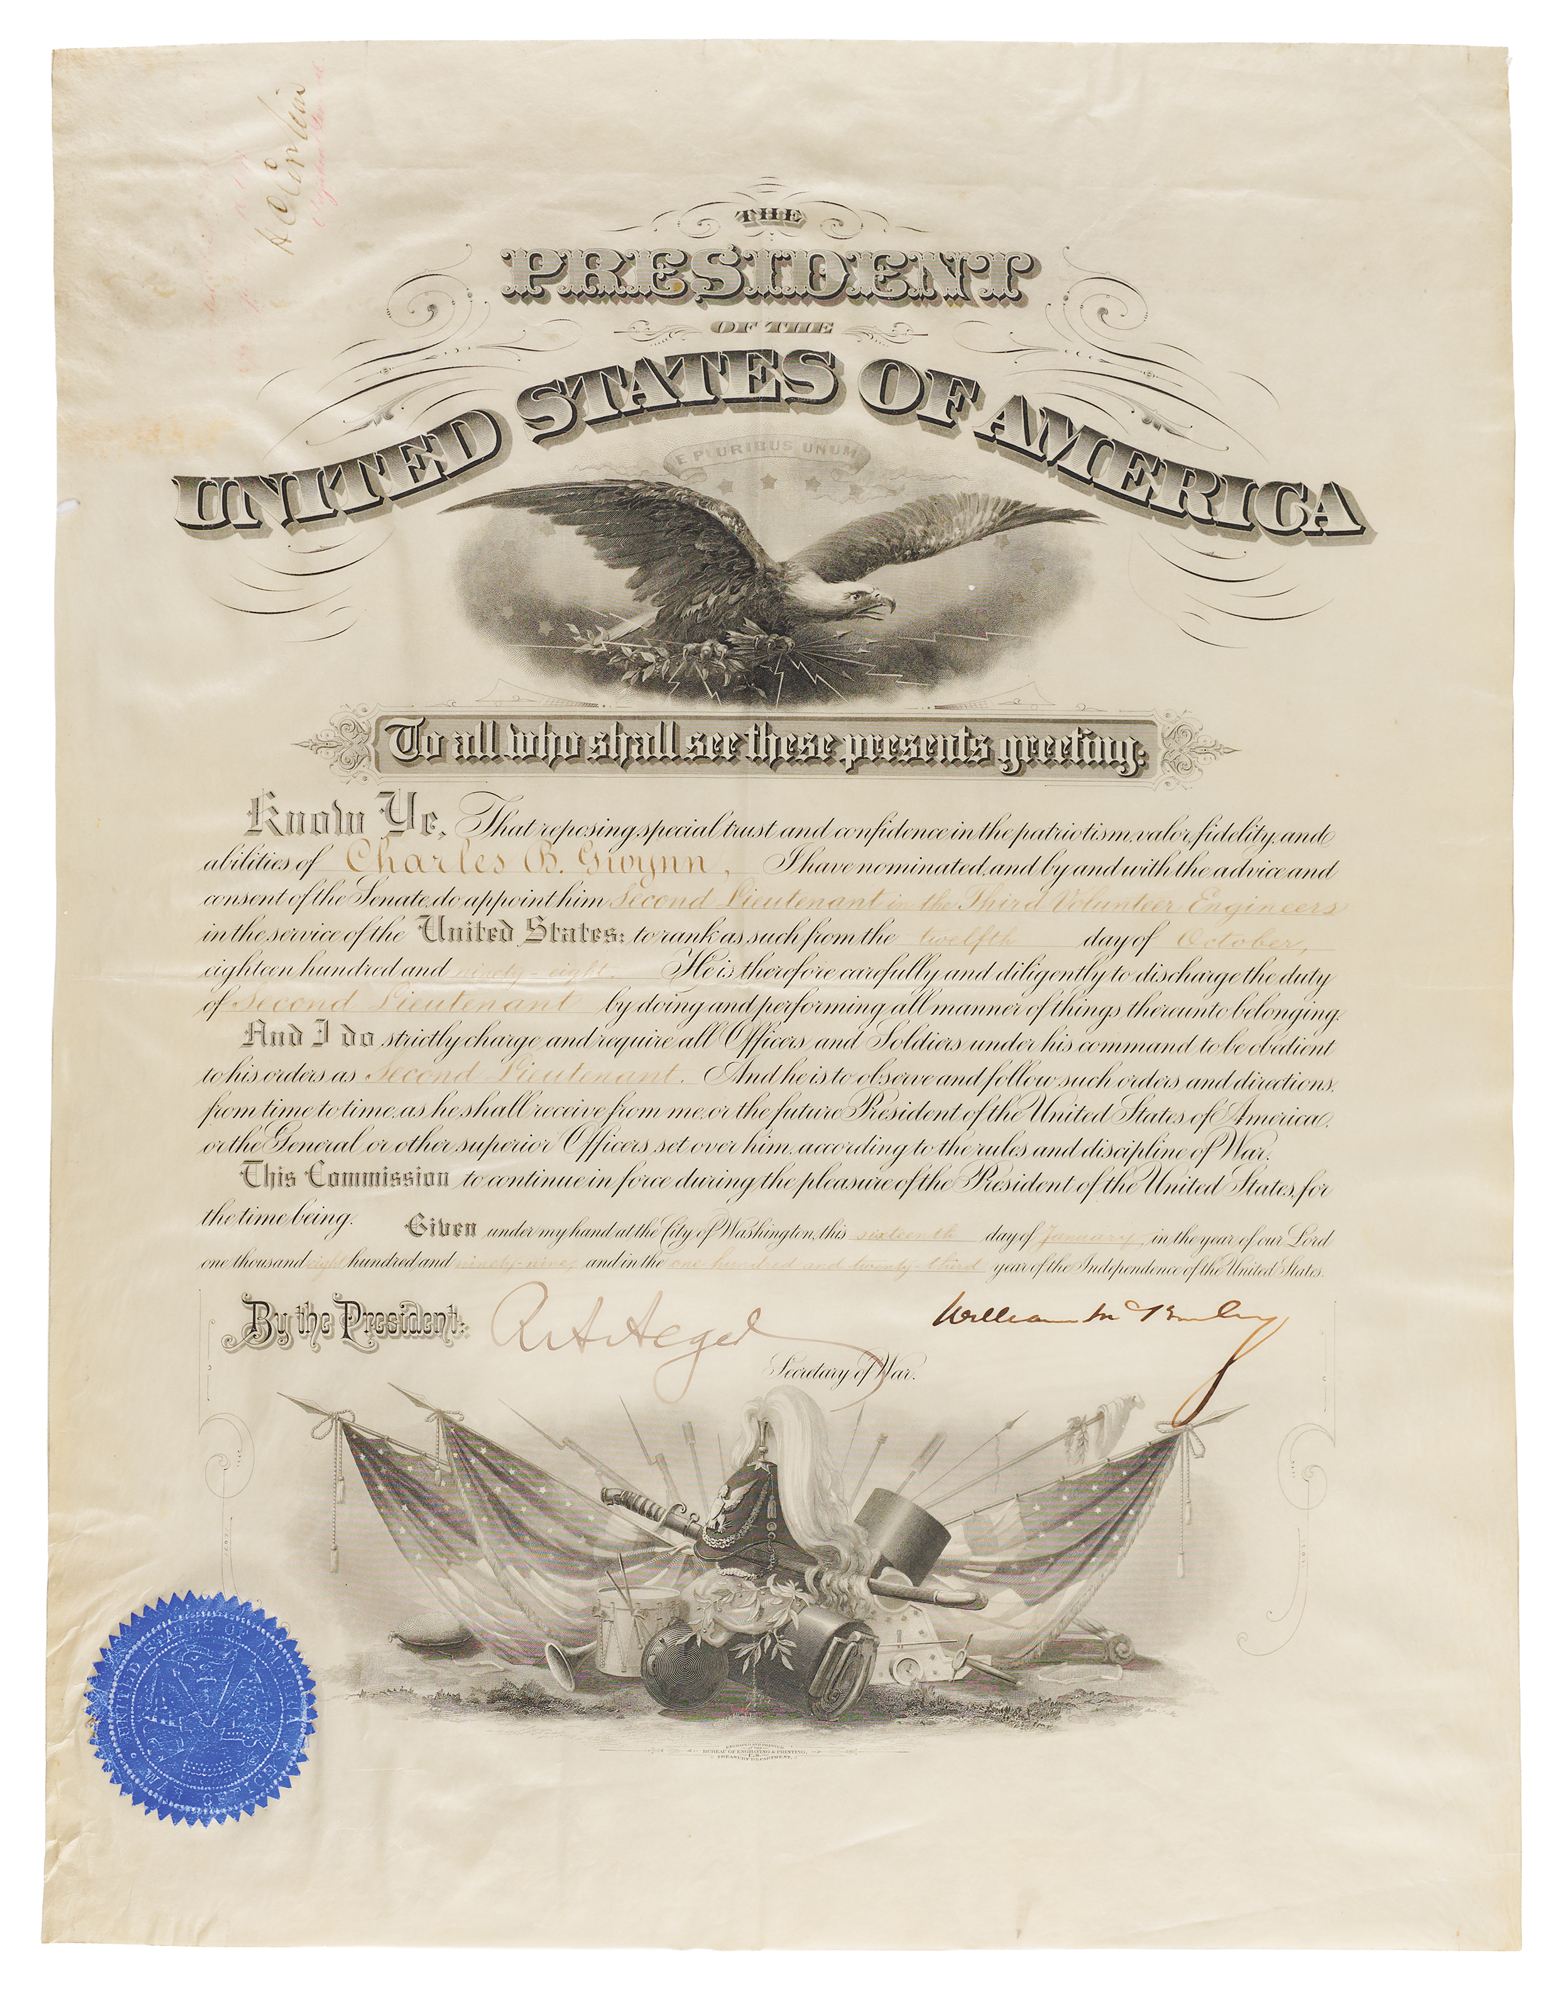 THE
PRESIDENT
OF THE
UNITED STATES OF AMERICA
E PLURIBUS UNUM
To all who shall see these presents greeting:
Know Ye, That reposing special trust and confidence in the patriotism, valor, fidelity, and
abilities of Charles B. Gwynn, I have nominated, and by and with the advice and
consent of the Senate, do appoint him Second Lieutenant in the Third Volunteer Engineers
in the service of the United States: to rank as such from the twelfth day of October,
eighteen hundred and ninety-eight. He is therefore carefully and diligently to discharge the duty
of Second Lieutenant by doing and performing all manner of things thereunto belonging.
And I do strictly charge and require all Officers and Soldiers under his command to be obedient
to his orders as Second Lieutenant. And he is to observe and follow such orders and directions,
from time to time, as he shall receive from me, or the future President of the United States of America,
or the General or other superior Officers set over him, according to the rules and discipline of War.
This Commission to continue in force during the pleasure of the President of the United States, for
the time being.
Given under my hand at the City of Washington, this sixteenth day of January, in the year of our Lord
one thousand eight hundred and ninety-nine, and in the one hundred and twenty-third year of the Independence of the United States.
By the President: R A Alger William McKinley
Secretary of War.
UNITED STATES OF AMERICA
WAR OFFICE
ENGRAVED AND PRINTED
BUREAU OF ENGRAVING & PRINTING,
TREASURY DEPARTMENT.